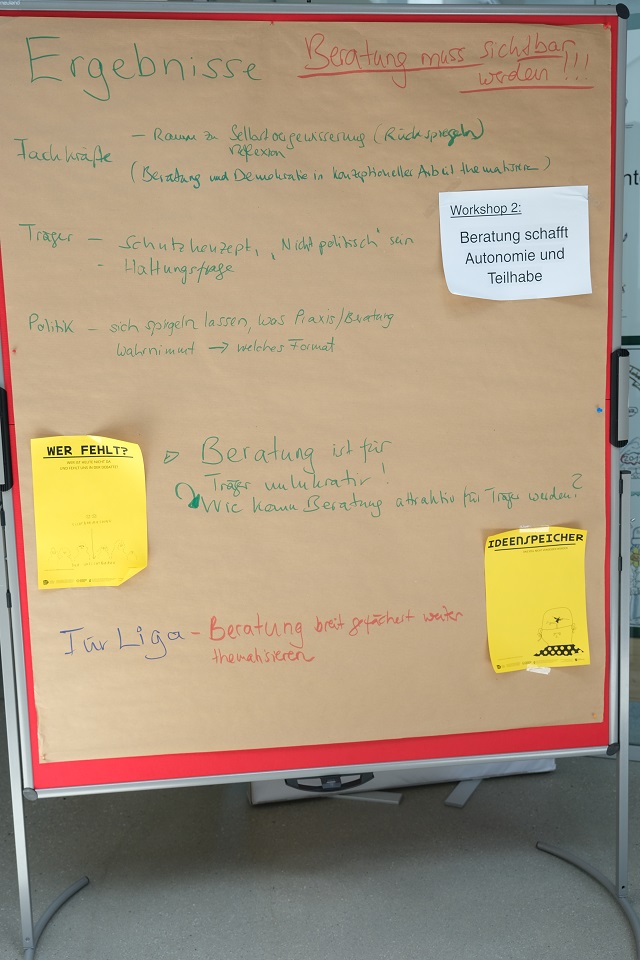 neuland
Ergebnisse
Beratung muss sichtbar
werden !!!
Fachkräfte
– Raum zu Selbstvergewisserung (Rückspiegeln)
Reflexion
(Beratung und Demokratie in konzeptioneller Arbeit thematisieren)
Workshop 2:
Beratung schafft
Autonomie und
Teilhabe
Träger – Schutzkonzept, „Nicht politisch" sein
- Haltungsfrage
Politik – sich spiegeln lassen, was Praxis/Beratung
wahrnimmt → welches Format
WER FEHLT?
▷ Beratung ist für
Träger unlukrativ!
Wie kann Beratung attraktiv für Träger werden?
IDEENSPEICHER
Für Liga – Beratung breit gefächert weiter
thematisieren